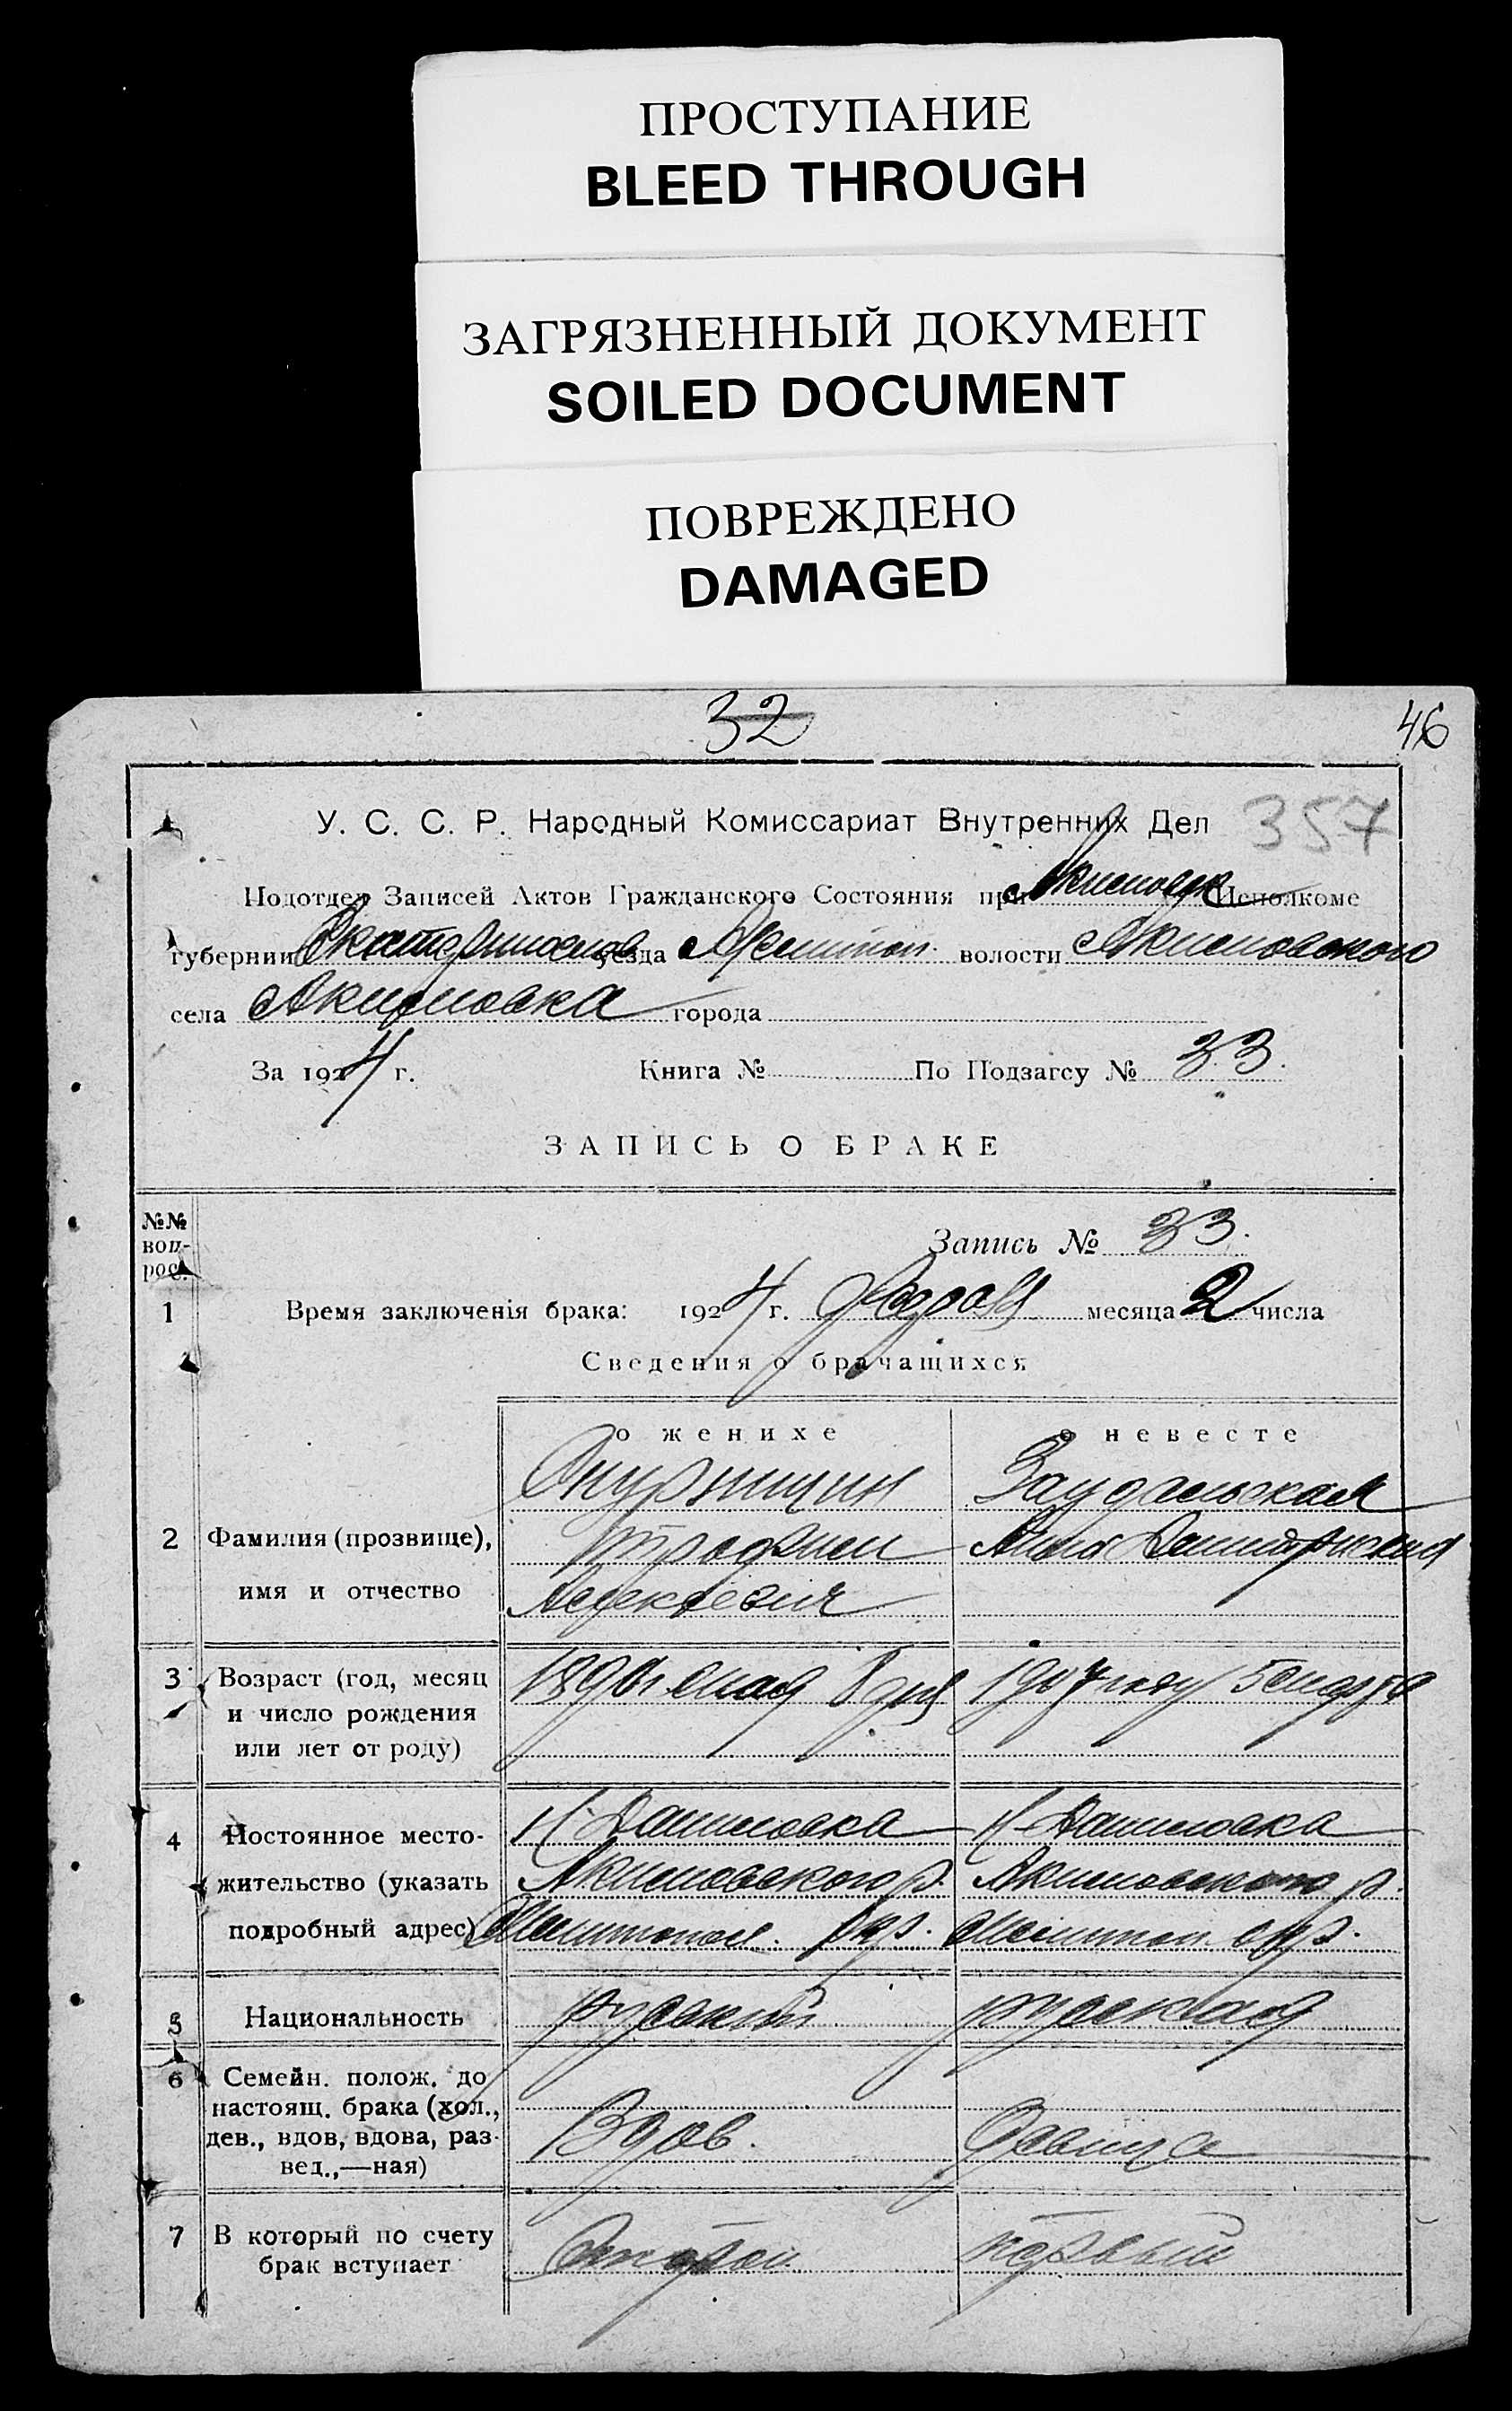 ПРОСТУПАНИЕ
BLEED THROUGH
ЗАГРЯЗНЕННЫЙ ДОКУМЕНТ
SOILED DOCUMENT
ПОВРЕЖДЕНО
DAMAGED
32
46
У. С. С. Р. Народный Комиссариат Внутренних Дел 357
Подотдел Записей Актов Гражданского Состояния при Исполкоме
губернии Екатеринослав уезда Мелитоп. волости Акимовского
села Акимовка города
За 1924 г. Книга № По Подзагсу № 33.
ЗАПИСЬ О БРАКЕ
№№ воп-рос.
Запись № 33.
1 Время заключенія брака: 1924 г. месяца 2 числа
Сведения о брачащихся
о женихе о невесте
2 Фамилия (прозвище),
имя и отчество
Трофим Анна
Алексеевич
3 Возраст (год, месяц
и число рождения
или лет от роду)
мая 8 дня 1907 году 5
4 Постоянное место-
жительство (указать
подробный адрес)
Н Даниловка Н Даниловка
Акимовского р. Акимовского р.
Мелитопол. Окр. Мелитоп. окр.
5 Национальность русский русская
6 Семейн. полож. до
настоящ. брака (хол.,
дев., вдов, вдова, раз-
вед.,—ная)
Вдов. Девица
7 В который по счету
брак вступает
Второй первый